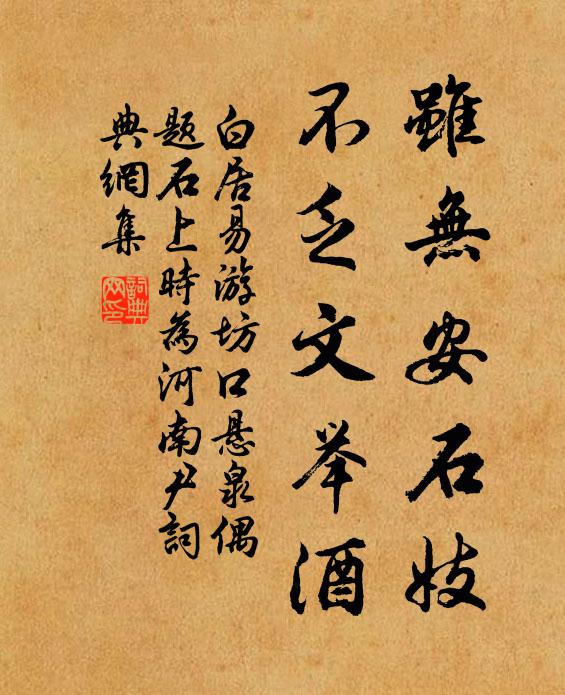 雖無安石妓
不乏文举酒
白居易游坊口悬泉偶
题石上時為河南尹詞
典網集
詞典
网印